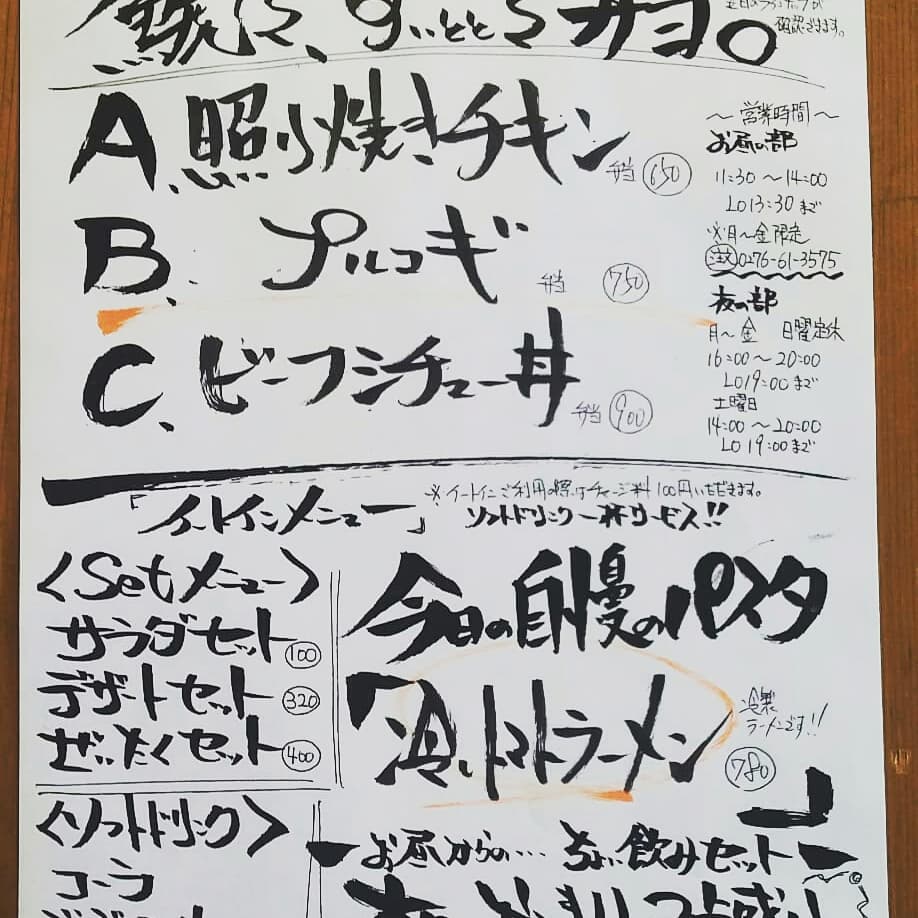 すいととSサヨ。
確認できます。
A、照り焼きチキン
弁当 650
B、プルコギ
弁当 750
C、ビーフシチュー丼
弁当 900
〜営業時間〜
お昼の部
11:30〜14:00
LO13:30まで
※月〜金限定
注文 0276-61-3575
夜の部
月〜金 日曜定休
16:00〜20:00
LO19:00まで
土曜日
14:00〜20:00
LO 19:00まで
「イートインメニュー」
※イートインご利用の際はチャージ料100円いただきます。
ソフトドリンク一杯サービス!!
〈Setメニュー〉
サラダセット 100
デザートセット 320
ぜいたくセット 400
〈ソフトドリンク〉
コーラ
今日の自慢のパスタ
「冷、トマトラーメン」
冷製
ラーメンです!!
780
お昼からの…ちょい飲みセット